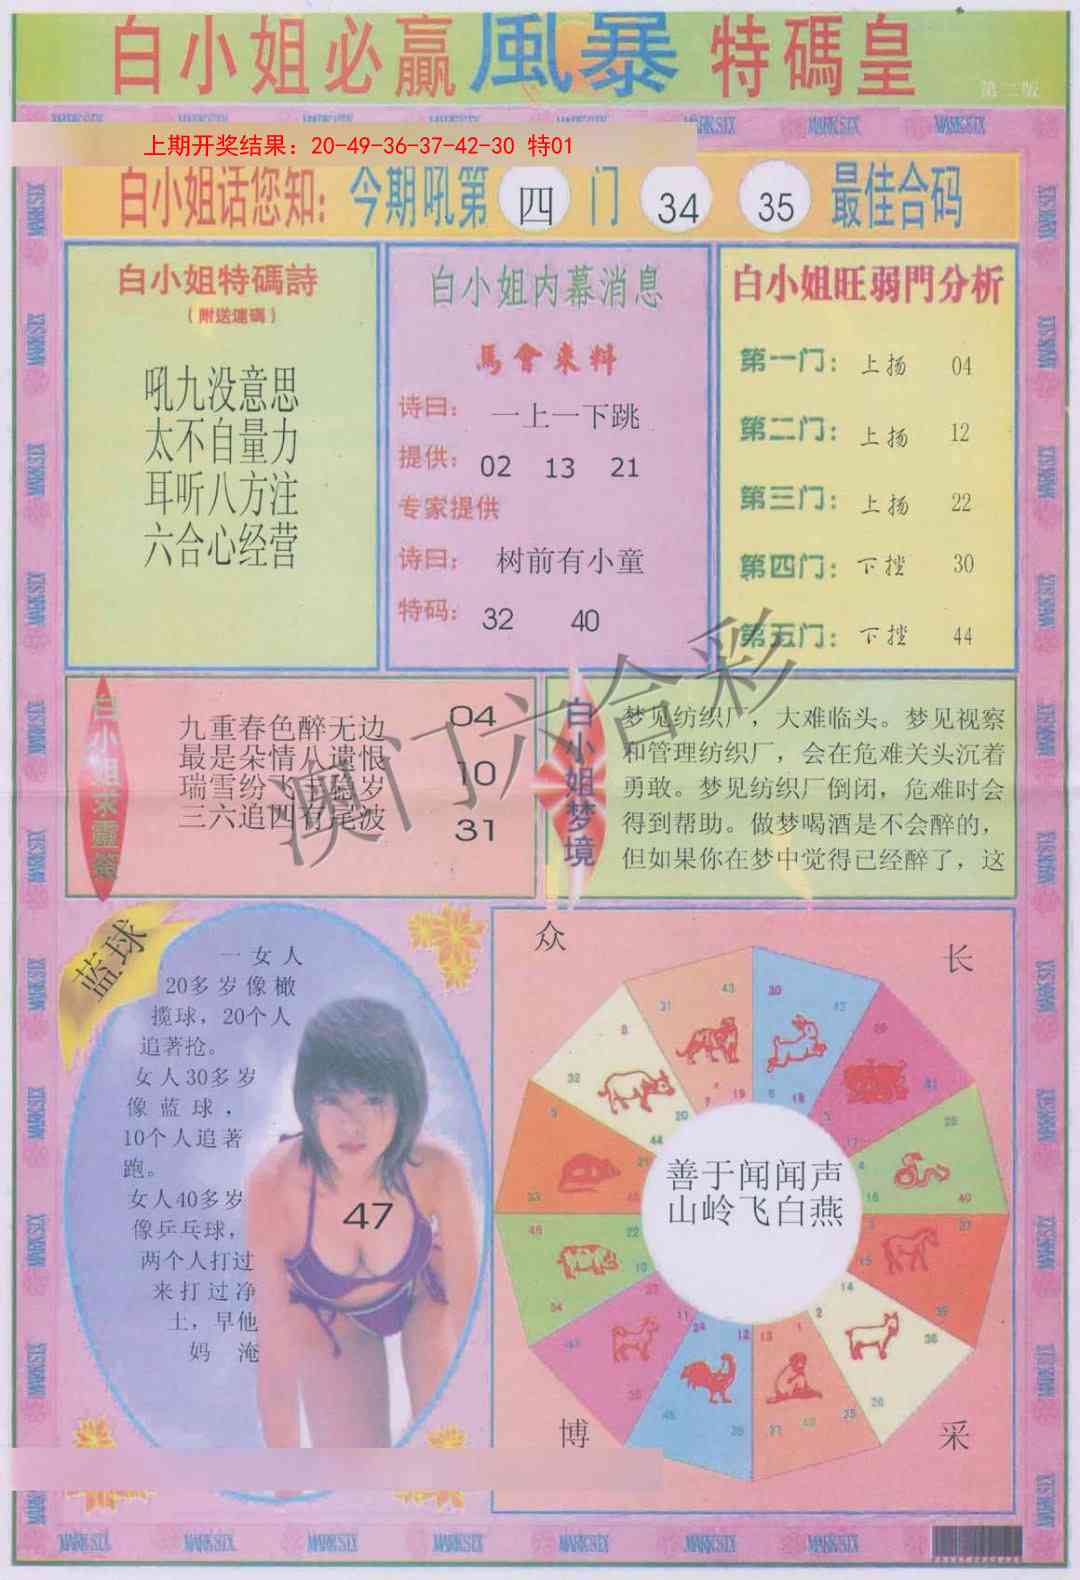 白小姐必贏風暴特碼皇
第二版
上期开奖结果：20-49-36-37-42-30 特01
白小姐话您知：今期吼第 四 门 34 35 最佳合码
白小姐特碼詩
（附送速碼）
吼九没意思
太不自量力
耳听八方注
六合心经营
白小姐内幕消息
馬會来料
诗曰： 一上一下跳
提供： 02 13 21
专家提供
诗曰： 树前有小童
特码： 32 40
白小姐旺弱門分析
第一门： 上扬 04
第二门： 上扬 12
第三门： 上扬 22
第四门： 下挫 30
第五门： 下挫 44
白小姐求靈簽
九重春色醉无边 04
最是朵情八遗恨
10
瑞雪纷飞主稳岁
三六追四有尾波 31
白小姐梦境
梦见纺织厂，大难临头。梦见视察
和管理纺织厂，会在危难关头沉着
勇敢。梦见纺织厂倒闭，危难时会
得到帮助。做梦喝酒是不会醉的，
但如果你在梦中觉得已经醉了，这
澳门六合彩
蓝球
一女人
20多岁像橄
揽球，20个人
追著抢。
女人30多岁
像蓝球，
10个人追著
跑。
女人40多岁
像乒乓球，
两个人打过
来打过净
土，早他
妈 淹
47
众 长
善于闻闻声
山岭飞白燕
博 采
MARKSIX